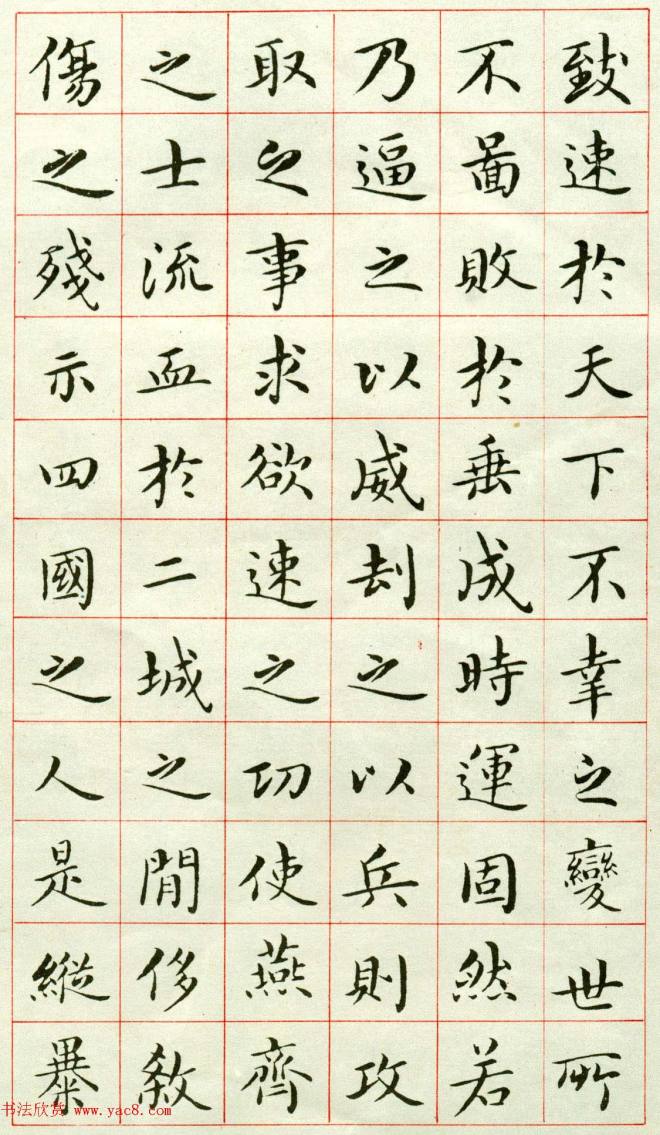 致速於天下不幸之變世所
不啚敗於垂成時運固然若
乃逼之以威刦之以兵則攻
取之事求欲速之功使燕齊
之士流血於二城之閒侈殺
傷之殘示四國之人是縱暴
书法欣赏 www.yac8.com